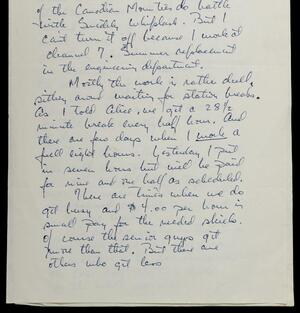 of the Canadian Mounties do battle
Suidely Whiplash. But I
can't turn it off because I work at
channel 7. Summer replacement
in the engineering department.
Mostly the work is rather dull,
sitting around waiting for station breaks.
As I told Alice, we get a 28½
minute break every half hour. And
there are few days when I work a
full eight hours. Yesterday I put
in seven hours but will be paid
for nine and one half as scheduled.
There are times when we do
get busy and $4.00 per hour is
small pay for the needed skills.
Of course the senior guys get
more than that. But there are
others who get less